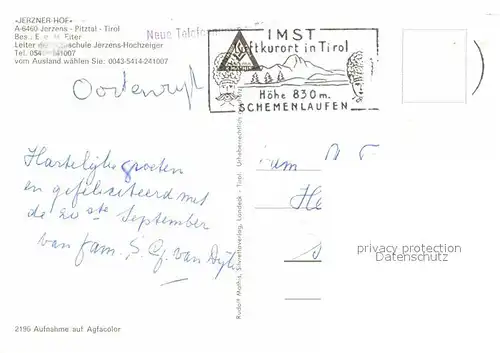 «JERZNER HOF»
A-6460 Jerzens - Pitztal - Tirol
Bes.: E. u. M. Eiter
Leiter der Schischule Jerzens-Hochzeiger
Tel. 05414-241007
vom Ausland wählen Sie: 0043-5414-241007
Neue Telefonnummer
IMST
Luftkurort in Tirol
Höhe 830 m.
SCHEMENLAUFEN
Hartelijke groeten
en gefeliciteerd met
de 20 ste September
van fam. S. Q. van
Rudolf Mathis, Silvrettaverlag, Landeck - Tirol. Urheberrechtlich
privacy protection
Datenschutz
2195 Aufnahme auf Agfacolor